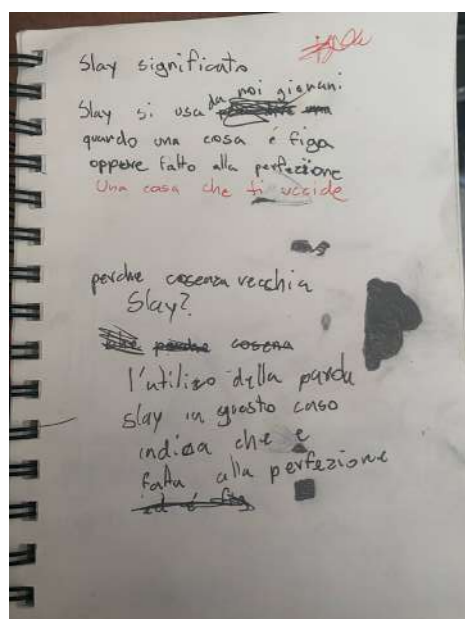 Slay significato
Slay si usa da noi giovani
quando una cosa é figa
oppure fatto alla perfezione
Una cosa che ti uccide
perche cosenza vecchia
Slay?
cosena
l'utilizo della parola
slay in questo caso
indica che e
fatta alla perfezione